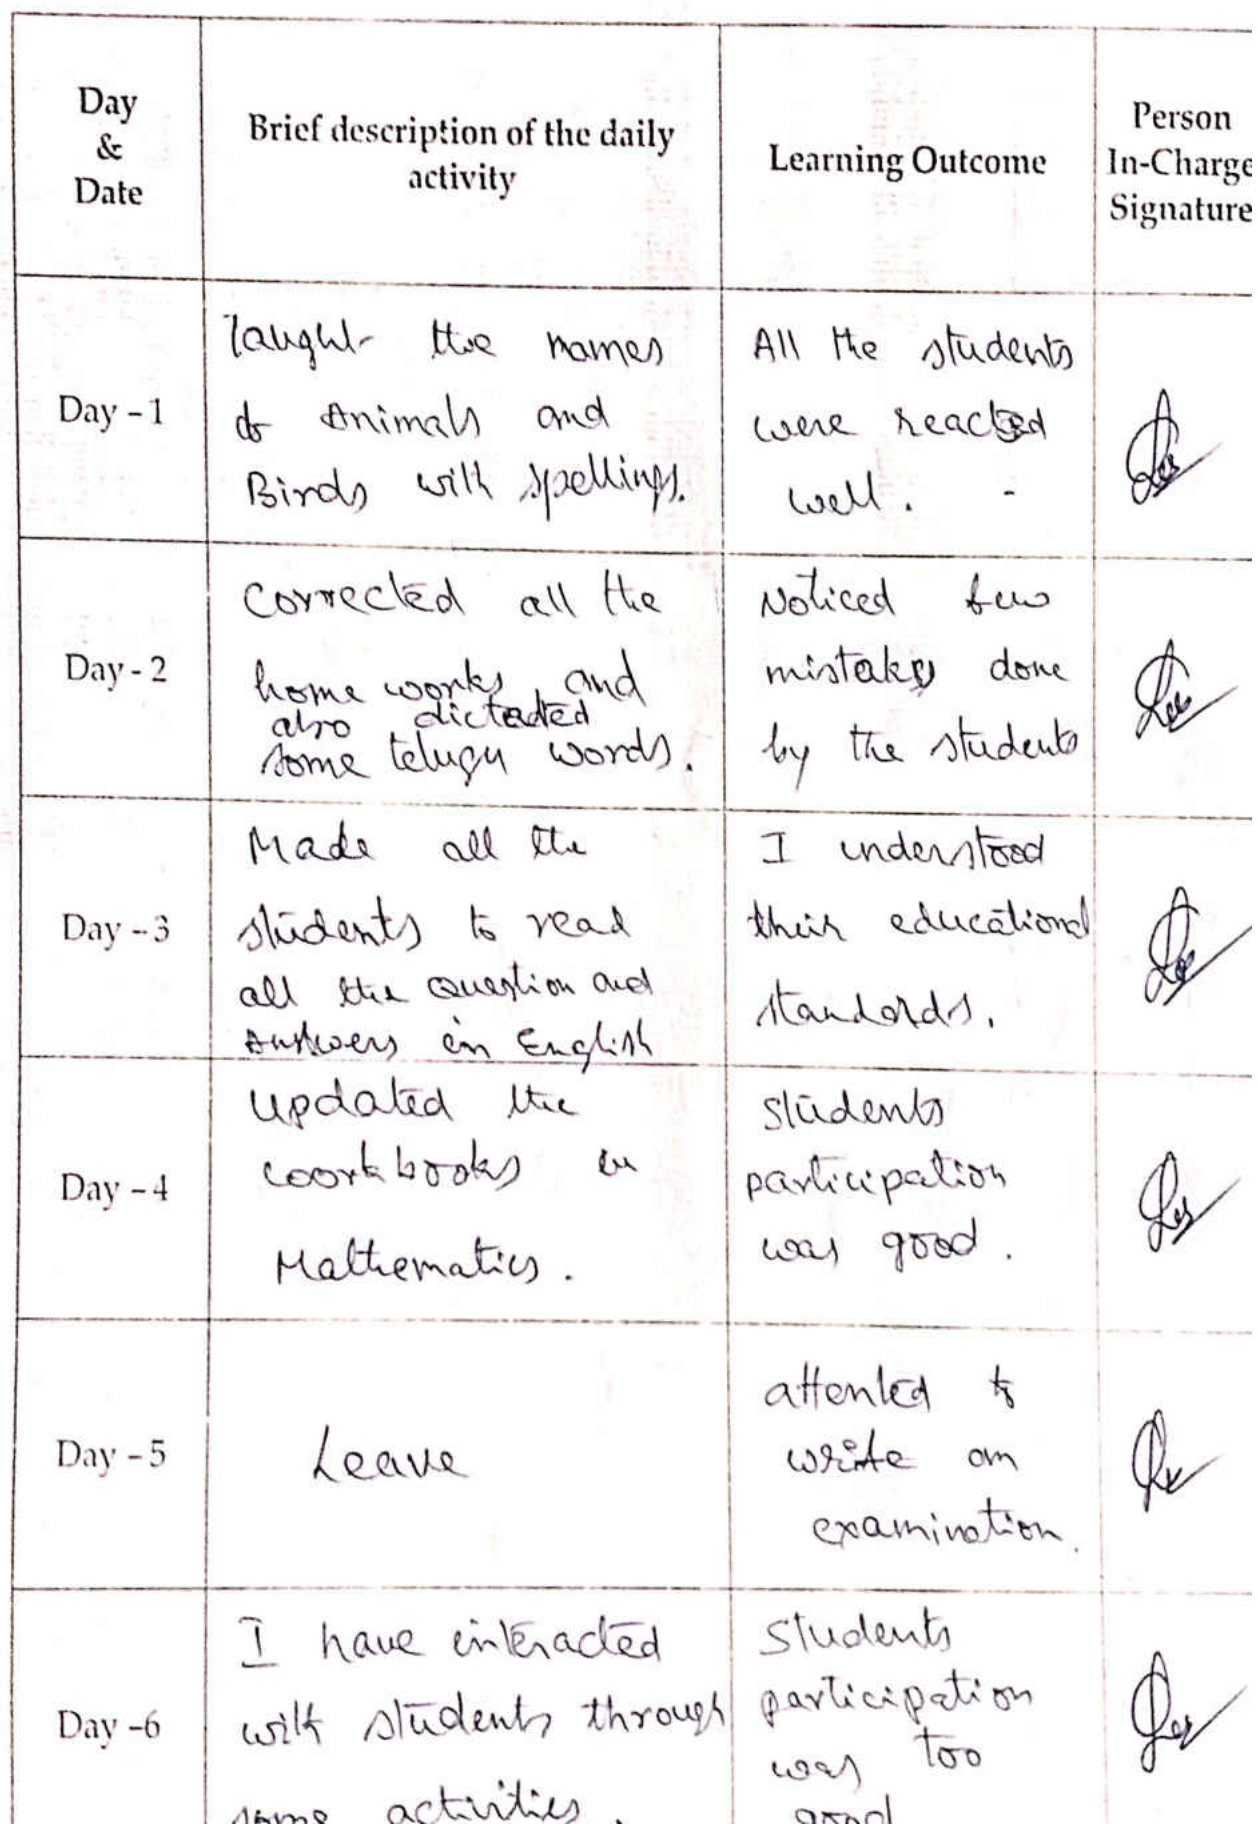 Day
&
Date
Brief description of the daily
activity
Learning Outcome
Person
In-Charge
Signature
Day - 1
Taught the names
of Animals and
Birds with spellings.
All the students
were reacted
well. -
Day - 2
Corrected all the
home works and
also dictated
some telugu words.
Noticed few
mistakes done
by the students
Day - 3
Made all the
students to read
all the Question and
Answers in English
I understood
their educational
standards.
Day - 4
Updated the
workbooks in
Mathematics.
Students
participation
was good.
Day - 5
Leave
attented to
write an
examination.
Day -6
I have interacted
with students through
some activities.
Students
participation
was too
good